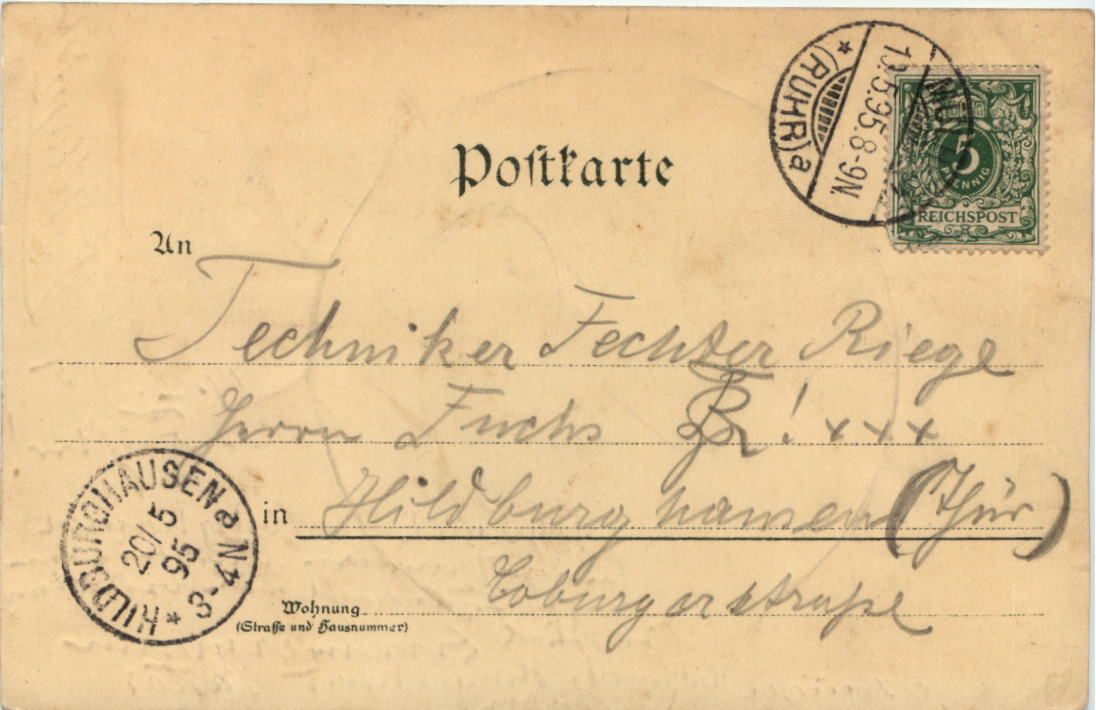 (RUHR) a
19.5.95.8-9N.
5
PFENNIG
REICHSPOST
Postkarte
An
Techniker Fechter Riege
Herrn Fuchs ! x x x
in Hildburghausen (Thür)
Wohnung
(Straße und Hausnummer)
Coburgerstraße
HILDBURGHAUSEN
20/5
95
3-4 N